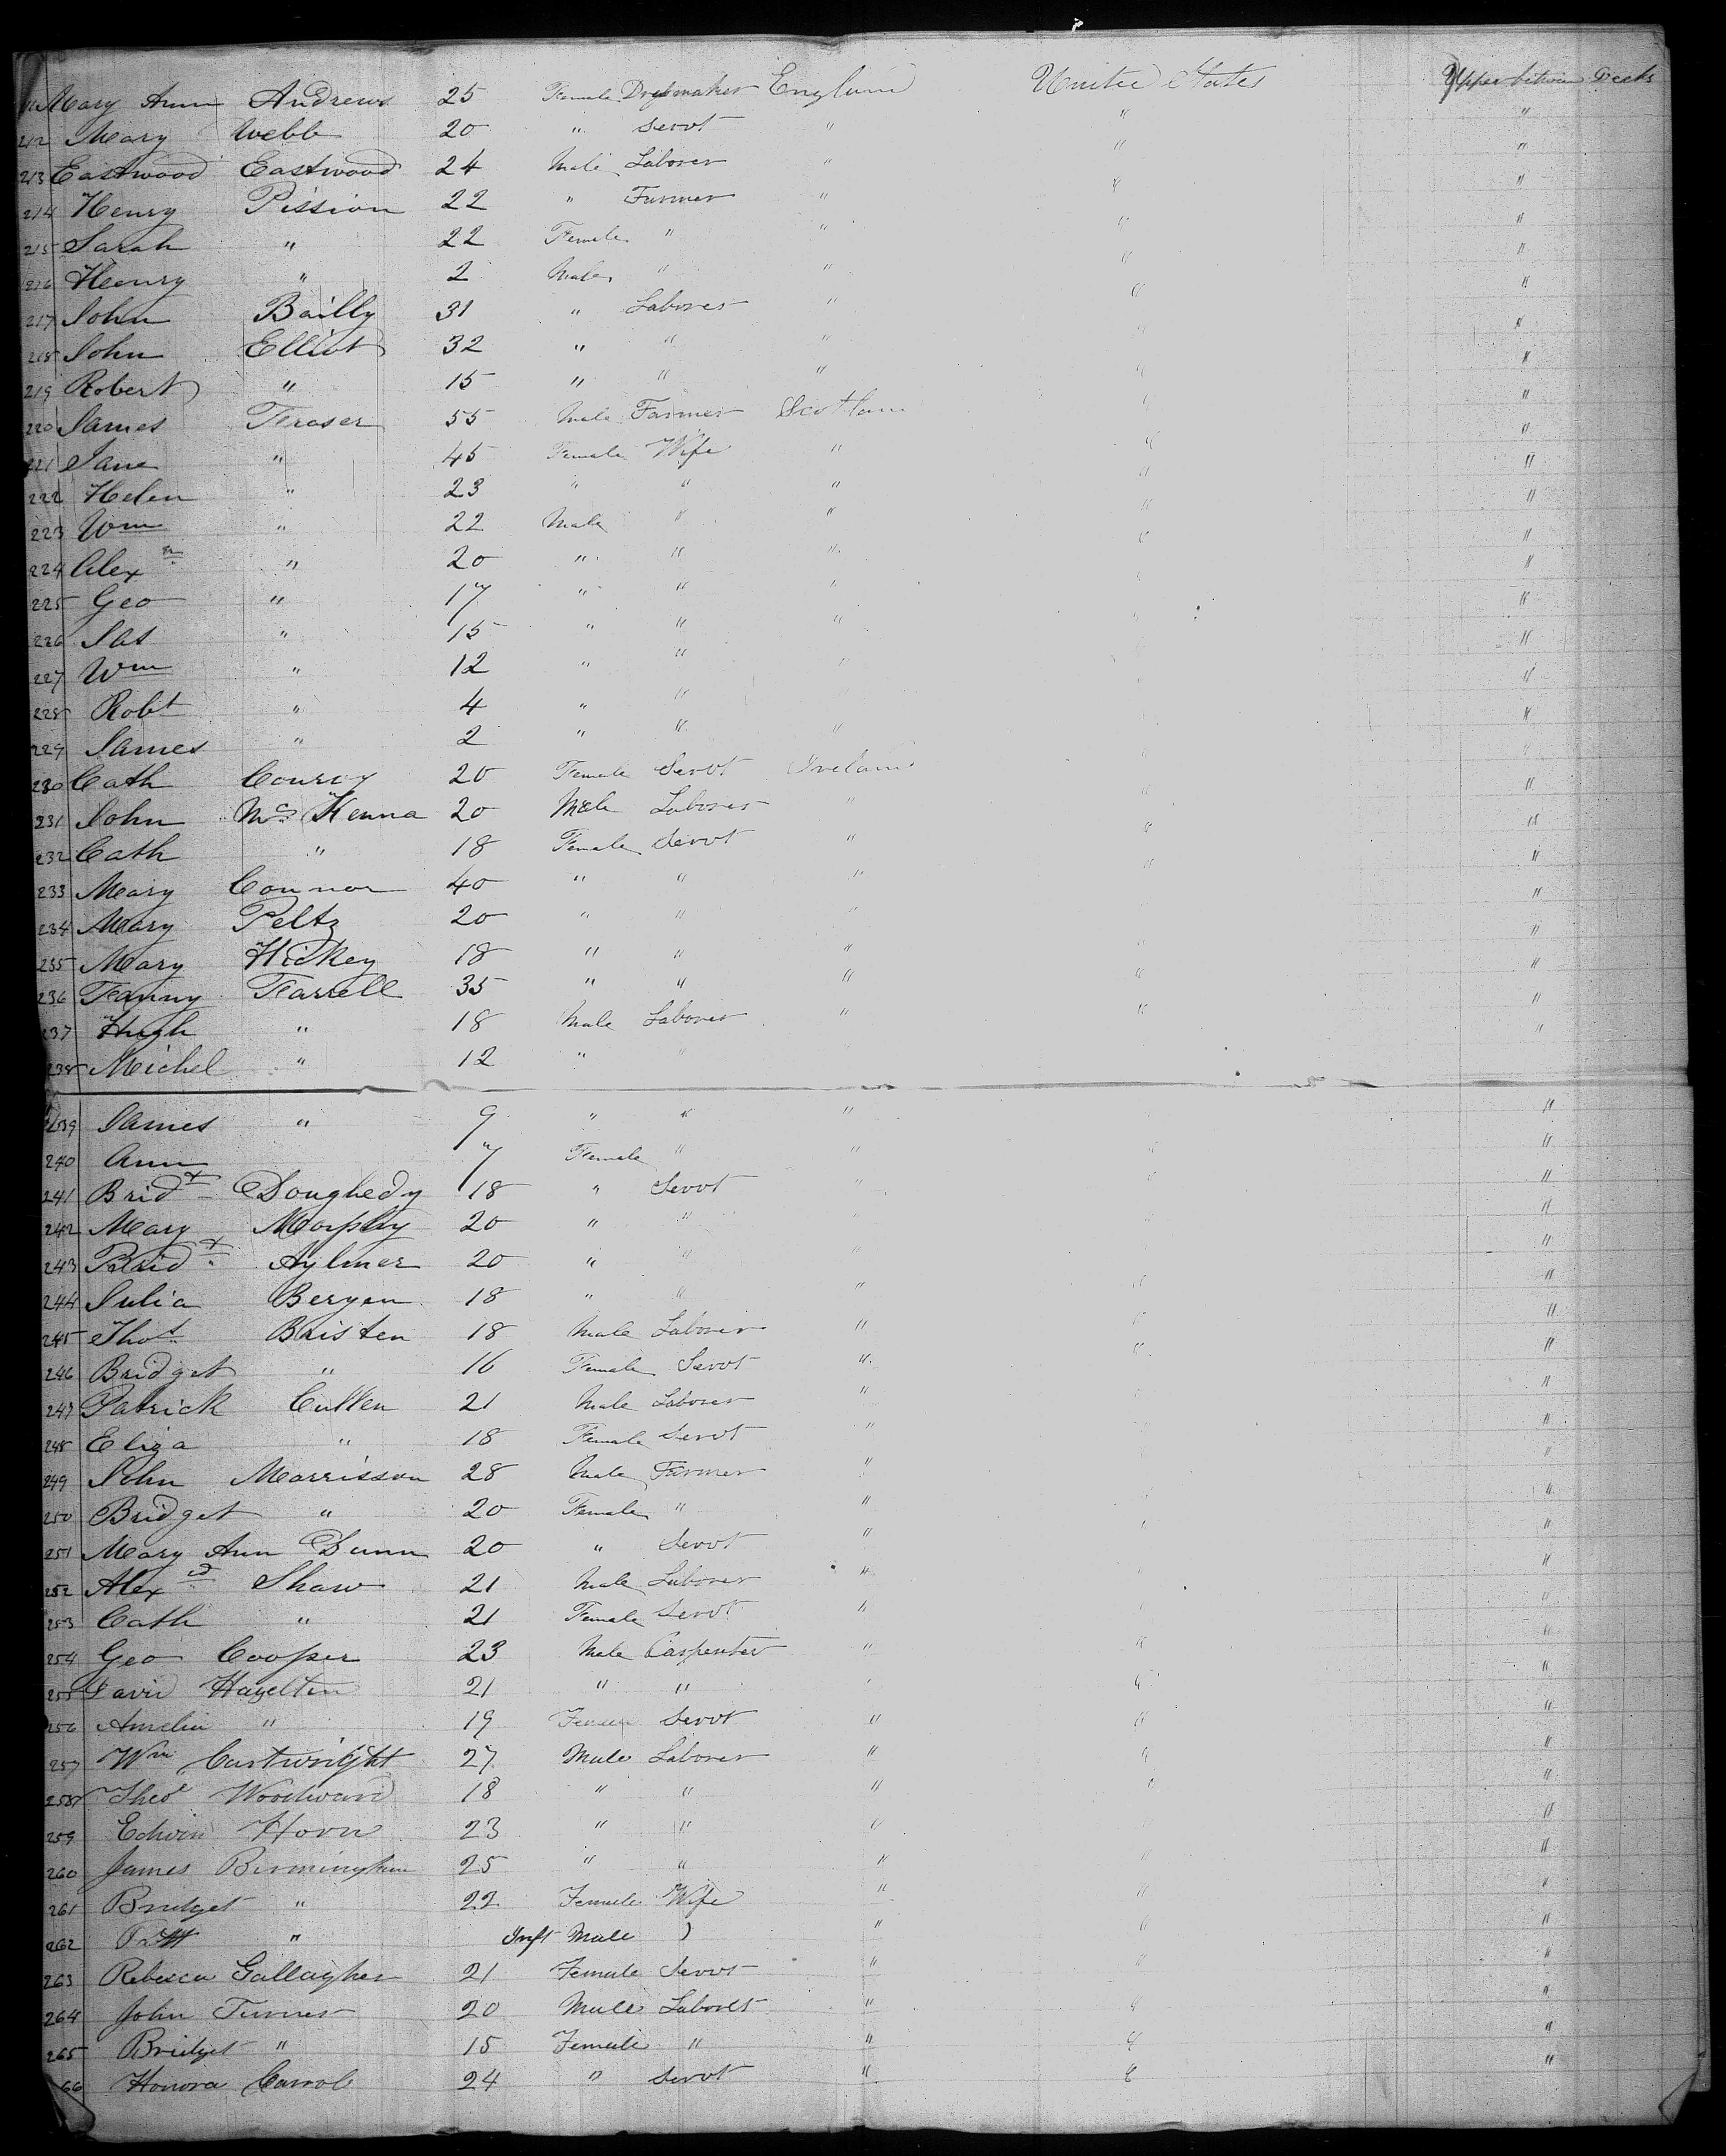 Mary Ann Andrews 25 Female Dressmaker England United States Upper between Decks
212 Mary Webb 20 " Servt " " "
213 Eastwood Eastwood 24 Male Laborer " " "
214 Henry Pission 22 " Farmer " " "
215 Sarah " 22 Female " " " "
216 Henry " 2 Male " " " "
217 John Bailly 31 " Laborer " " "
218 John Elliot 32 " " " " "
219 Robert " 15 " " " " "
220 James Fraser 55 Male Farmer Scotland " "
221 Jane " 45 Female Wife " " "
222 Helen " 23 " " " " "
223 Wm " 22 Male " " " "
224 Alexr " 20 " " " " "
225 Geo " 17 " " " " "
226 Jas " 15 " " " " "
227 Wm " 12 " " " "
228 Robt " 4 " " "
229 James " 2 " " " "
230 Cath Conroy 20 Female Servt Ireland "
231 John McKenna 20 Male Laborer " " "
232 Cath " 18 Female Servt " " "
233 Mary Connor 40 " " " " "
234 Mary Peltz 20 " " " "
235 Mary Hickey 18 " " " " "
236 Fanny Farrell 35 " " " " "
237 Hugh " 18 Male Laborer " " "
238 Michel " 12 " " "
239 James " 9 " " " "
240 Ann 7 Female " " " "
241 Bridt Doughedy 18 " Servt " " "
242 Mary Morphy 20 " " "
243 Bridt Aylmer 20 " " " "
244 Julia Bergen 18 " " " " "
245 Thos Bristen 18 Male Laborer " " "
246 Bridget " 16 Female Servt " " "
247 Patrick Cullen 21 Male Laborer " "
248 Eliza " 18 Female Servt " "
249 John Morrisson 28 Male Farmer " "
250 Bridget " 20 Female " " "
251 Mary Ann Dunn 20 " Servt " " "
252 Alexd Shaw 21 Male Laborer " "
253 Cath " 21 Female Servt " "
254 Geo Cooper 23 Male Carpenter " " "
255 David Hazelten 21 " " " " "
256 Amelia " 19 Female Servt " " "
257 Wm Cartwright 27 Male Laborer " " "
258 Theo Woodward 18 " " " " "
259 Edwin Horn 23 " " " "
260 James Birmingham 25 " " " " "
261 Bridget " 22 Female Wife " " "
262 " Inft Male ) " " "
263 Rebecca Gallagher 21 Female Servt " " "
264 John Turner 20 Male Laborer " " "
265 Bridget " 15 Female " " " "
66 Honora Carrol 24 " Servt " " "